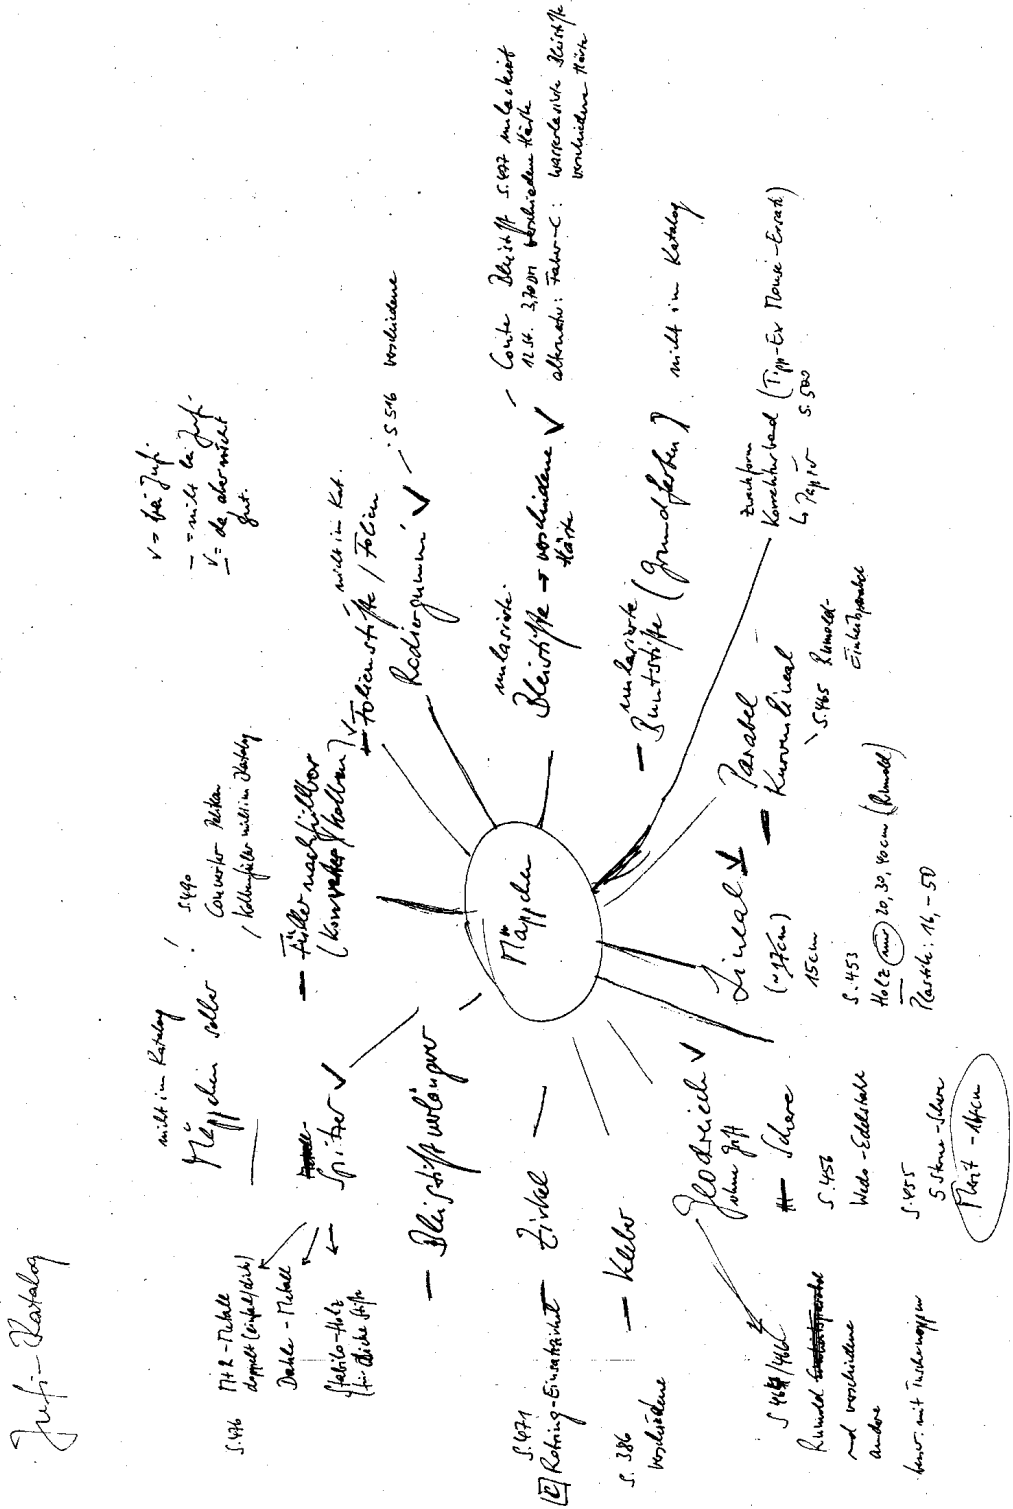 Jufi-Katalog
v = bei Jufi
– = nicht bei Jufi
v = da aber nicht
gut.
Mäppchen
nicht im Katalog
Mäppchen selber !
S. 490
Converter Pelikan
/ Kolbenfüller nicht im Katalog
– Füller nachfüllbar
(Konverter/Kolben)
– nicht im Kat.
Folienstifte / Folien
Radiergummi ✓
S 516 verschiedene
unlasierte
Bleistifte → verschiedene ✓
Härte
– Conte Bleistift S. 477 unlackiert
12 St. 3,70 DM verschiedene Härte
alternativ: Faber-C: wasserlasierte Bleistifte
verschiedene Härte
unlasierte
– Buntstifte (Grundfarben) nicht im Katalog
Korrekturband (Tipp-Ex Mouse-Ersatz)
S. 500
Parabel
– Kurvenlineal
S. 465 Rumold-
Einheitsparabel
Lineal ✓
(~17cm)
15cm
S. 453
Holz nur 20, 30, 40cm (Rumold)
Plastik: 16, – 50
– Schere
S. 456
Wedo-Edelstahl
S. 455
5 Sterne-Schere
14cm
Geodreieck ✓
ohne Griff
Rumold
und verschiedene
andere
– Kleber
S. 386
verschiedene
Zirkel –
S. 471
Rotring-Einsatzirkel
– Bleistiftverlängerer
Spitzer ✓
S. 476
M+R-Metall
doppelt (einfach/dick)
Dahle-Metall
Stabilo-Holz
für dicke Stifte